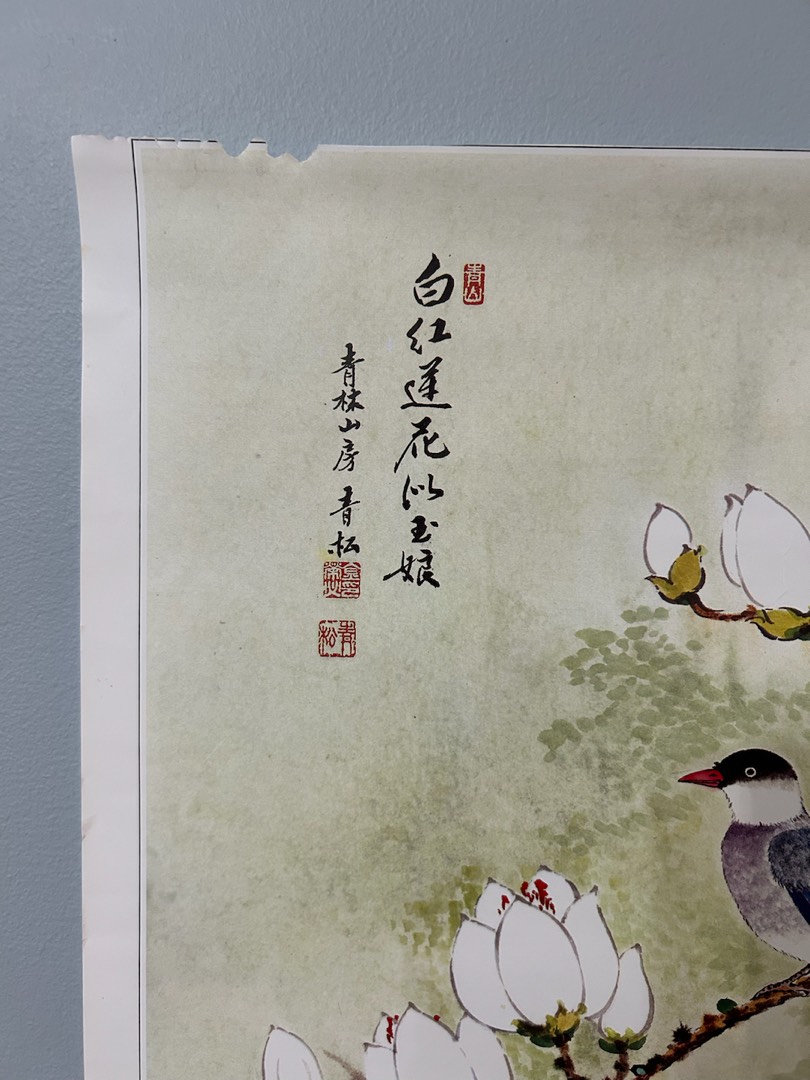 白红莲花似玉娘
青林山房 青松
青松